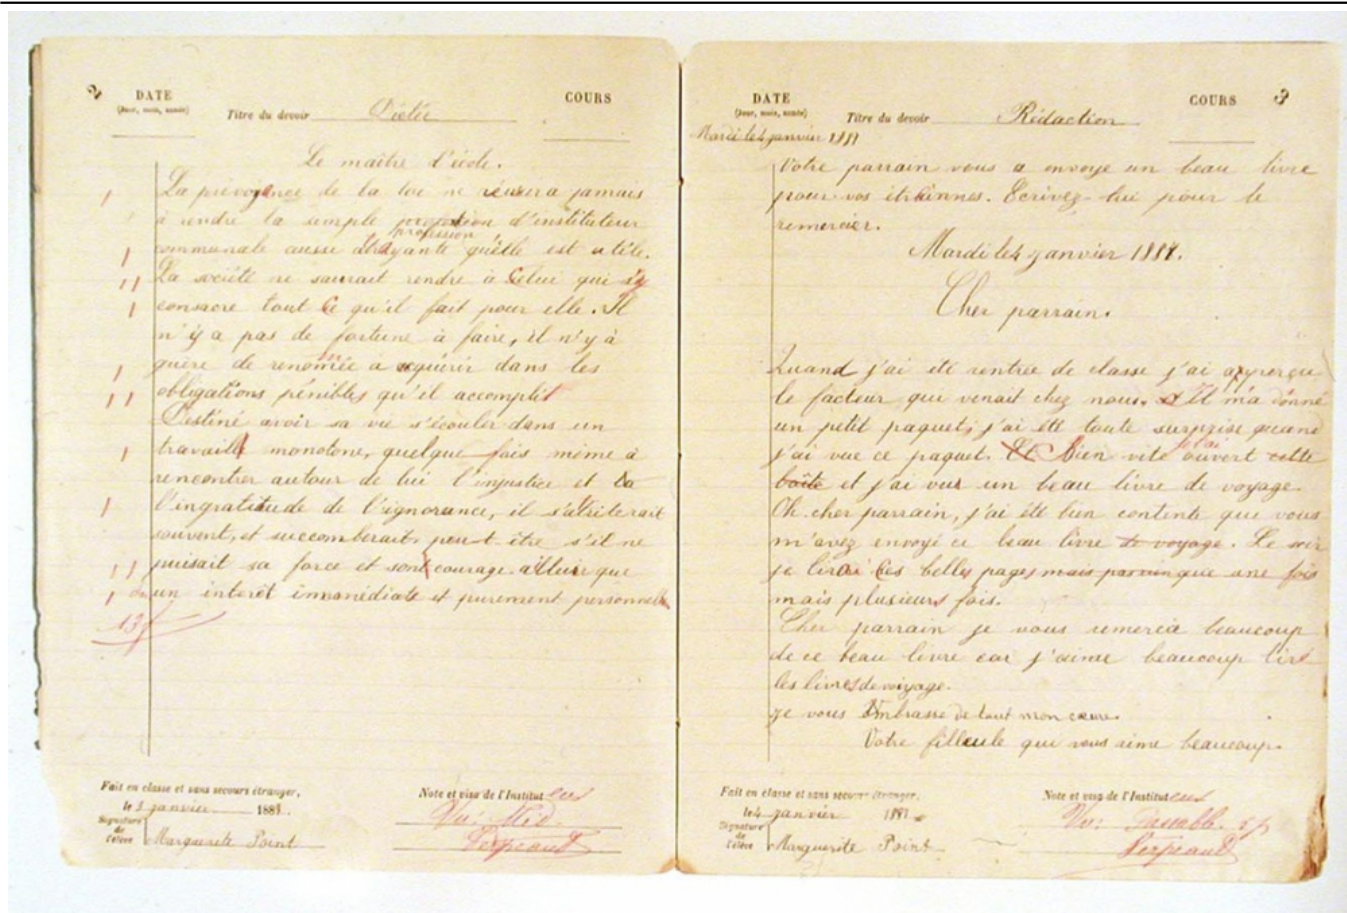 2
DATE
(Jour, mois, année)
Titre du devoir Dictée
COURS
Le maître d'école.
La prévoyance de la loi ne réusera jamais
à rendre la simple d'instituteur
profession
communale aussi attrayante qu'elle est utile.
La société ne saurait rendre à Celui qui s'y
consacre tout Ce qu'il fait pour elle. Il
n'y a pas de fortune à faire, il n'y à
guère de renomée à aquérir dans les
obligations pénibles qu'il accomplit
Destiné avoir sa vie s'écouler dans un
travaille monotone, quelque fois même à
rencontrer autour de lui l'injustice et
l'ingratitude de l'ignorance, il s'atristerait
souvent, et succomberait peut-être s'il ne
puisait sa force et sont courage ailleur que
un interêt immédiate et purement personnelle
13f
Fait en classe et sans secours étranger,
le 3 janvier 1881.
Signature
de
l'élève
Marguerite Point
Note et visa de l'Instituteur
Vu:
Perpeaud
DATE
(Jour, mois, année)
Mardi le 4 janvier 1881
Titre du devoir Rédaction
COURS 3
Votre parrain vous a envoye un beau livre
pour vos étrennes. Ecrivez-lui pour le
remercier.
Mardi le 4 janvier 1881.
Cher parrain.
Quand j'ai été rentrée de classe j'ai apperçu
le facteur qui venait chez nous. Il m'a donné
un petit paquet, j'ai été toute surprise quand
j'ai vue ce paquet. Et Bien vite j'ai ouvert cette
boîte et j'ai vue un beau livre de voyage.
Oh cher parrain, j'ai été bien contente que vous
m'avez envoyé ce beau livre de voyage. Le soir
je lirai Ces belles pages mais pas rien que une fois
mais plusieurs fois.
Cher parrain je vous remercie beaucoup
de ce beau livre car j'aime beaucoup lire
les livres de voyage.
Je vous embrasse de tout mon cœur.
Votre filleule qui vous aime beaucoup.
Fait en classe et sans secours étranger,
le 4 janvier 1881
Signature
de
l'élève
Marguerite Point
Note et visa de l'Instituteur
Vu: Passabl.
Perpeaud